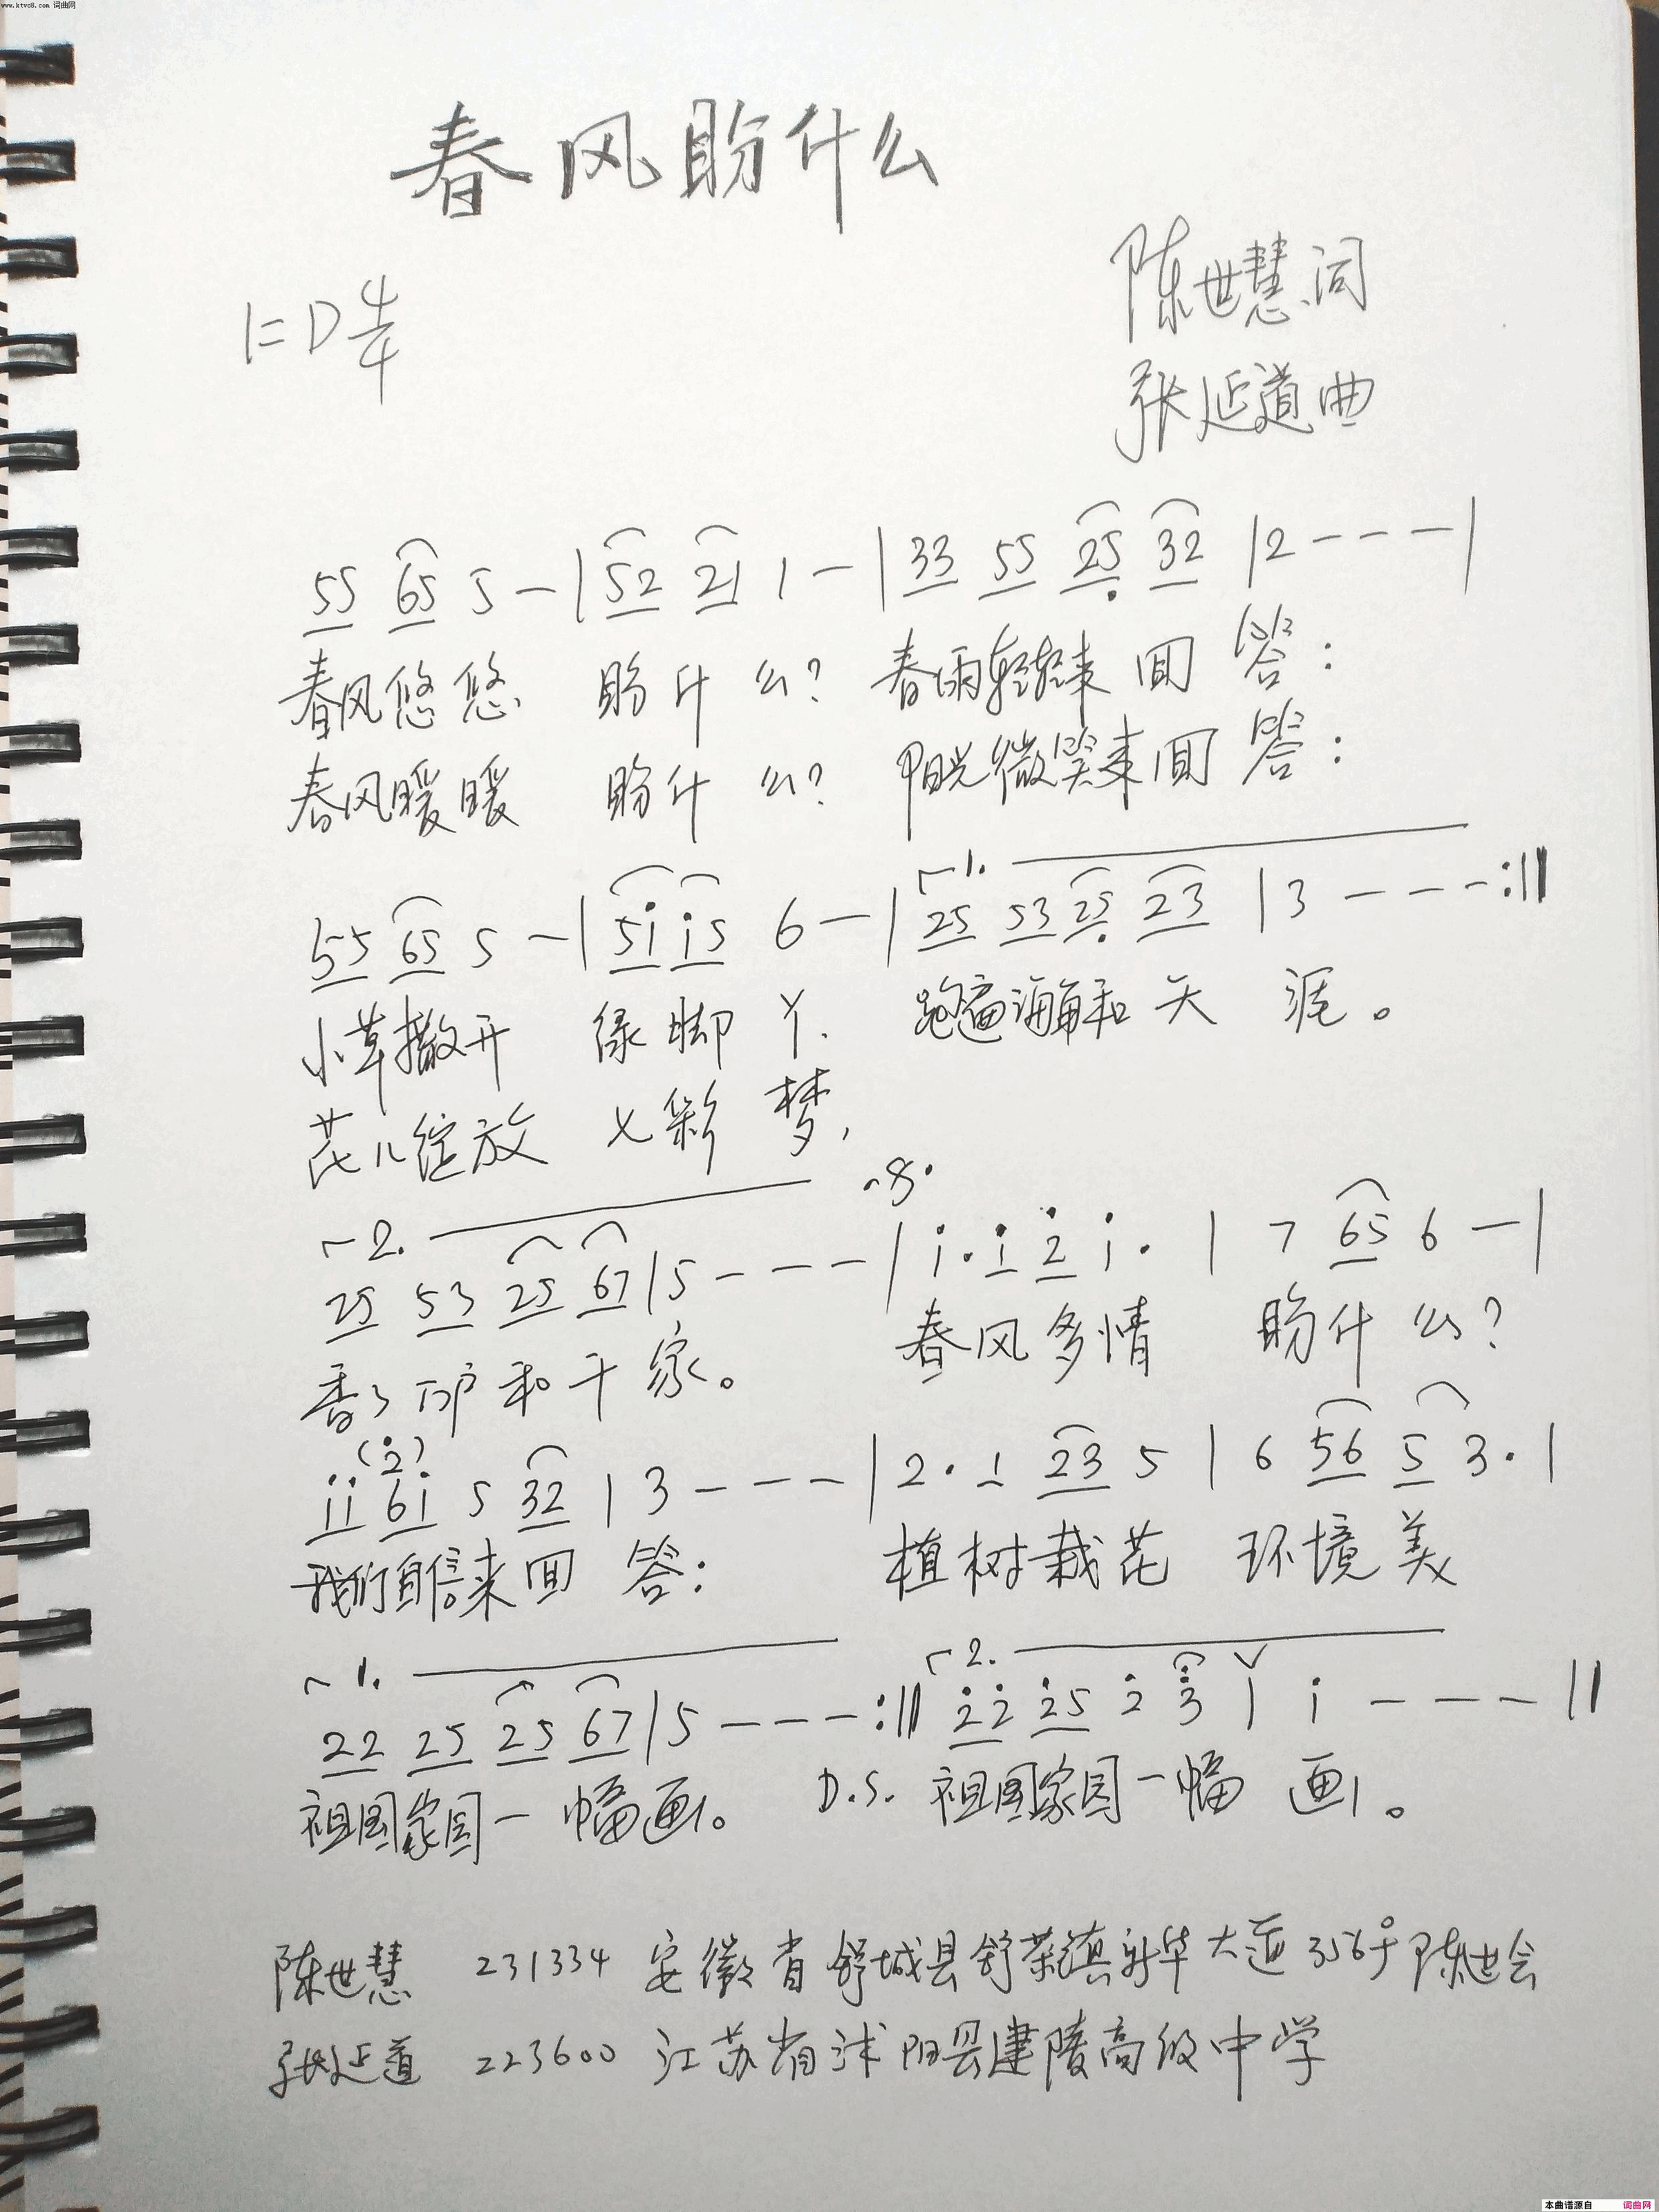 www.ktvc8.com 词曲网
春风盼什么
陈世慧词
1=D 4/4
张延道曲
55 65 5 - | 52 21 1 - | 33 55 25 32 | 2 - - - |
春风悠悠 盼什么? 春雨轻轻来回答:
春风暖暖 盼什么? 阳光微笑来回答:
1.
55 65 5 - | 5i i5 6 - | 25 53 25 23 | 3 - - - :||
小草撒开 绿脚丫, 跑遍海角和天涯。
花儿绽放 七彩梦,
2. 𝄋
25 53 25 67 | 5 - - - | i· i 2 i· | 7 65 6 - |
香了万户和千家。 春风多情 盼什么?
(2)
ii 6i 5 32 | 3 - - - | 2· 1 23 5 | 6 56 5 3· |
我们自信来回答: 植树栽花 环境美
1. 2.
22 25 25 67 | 5 - - - :|| 22 25 2 3 ∨ | i - - - ||
祖国家园一幅画。 D.S. 祖国家园一幅画。
陈世慧 231334 安徽省舒城县舒茶镇新华大道356号 陈世会
张延道 223600 江苏省沭阳县建陵高级中学
本曲谱源自 词曲网